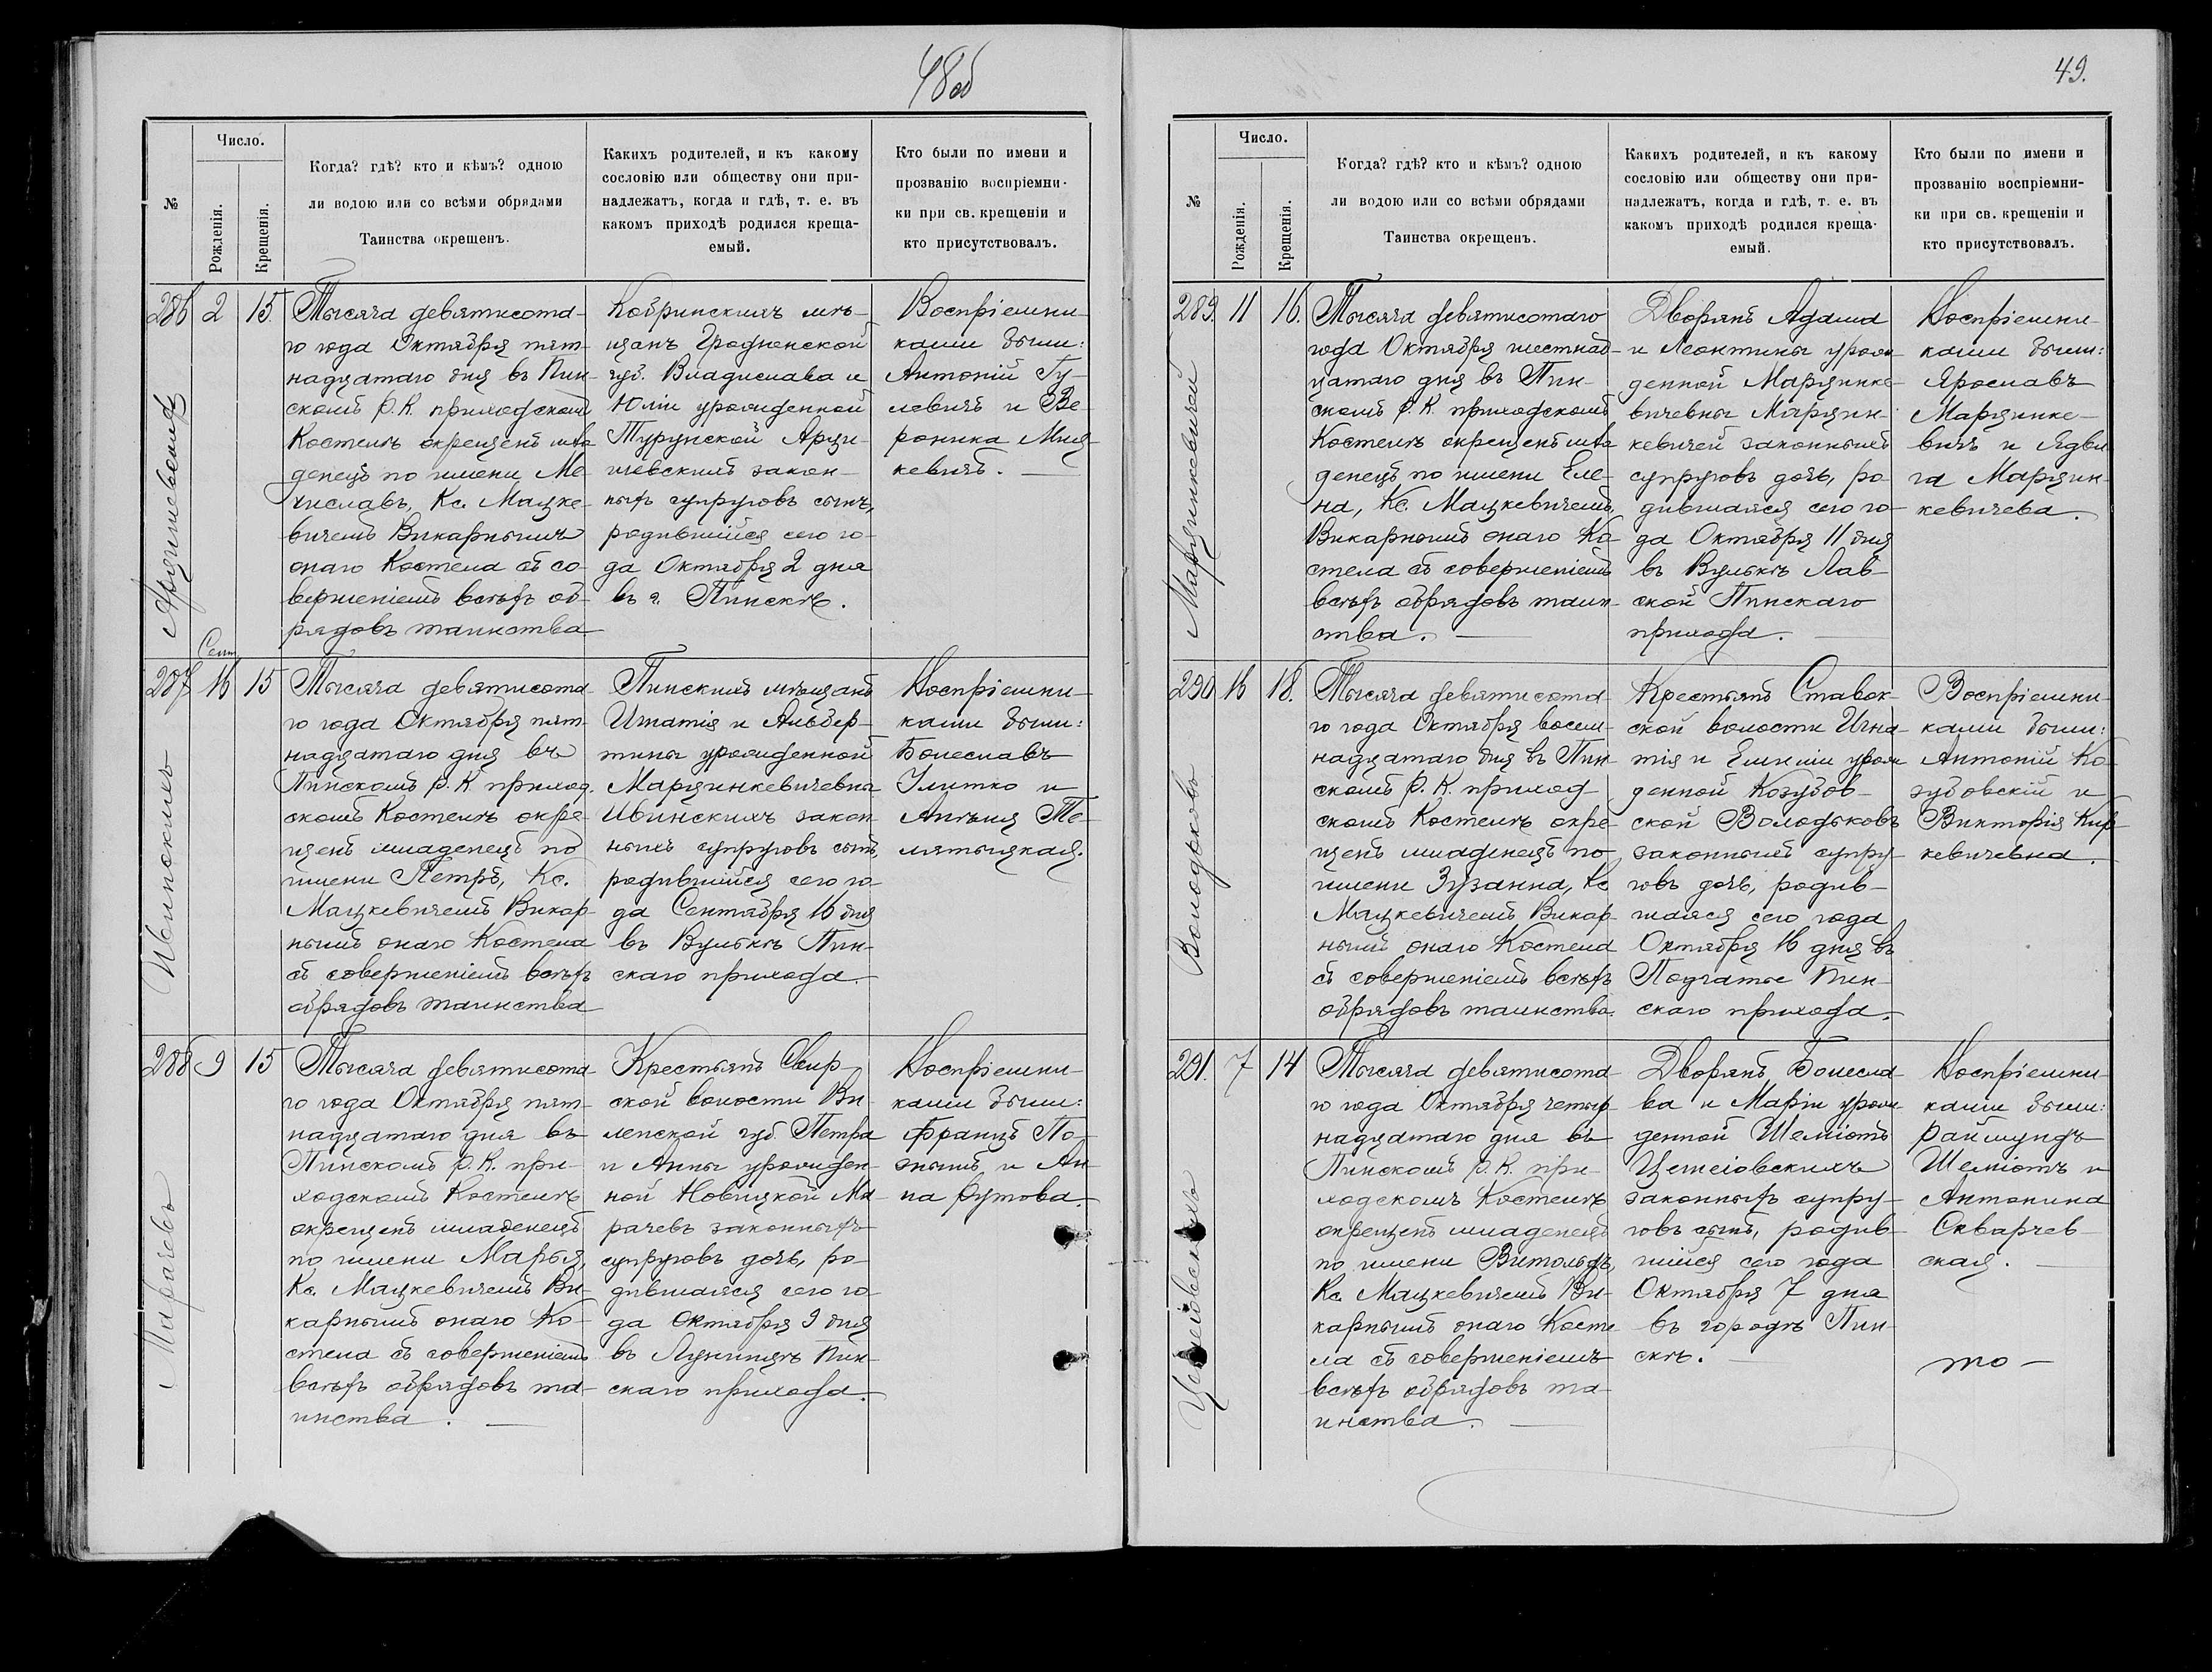 48об
№
Число.
Рожденія.
Крещенія.
Когда? гдѣ? кто и кѣмъ? одною
ли водою или со всѣми обрядами
Таинства окрещенъ.
Какихъ родителей, и къ какому
сословію или обществу они при-
надлежатъ, когда и гдѣ, т. е. въ
какомъ приходѣ родился креща-
емый.
Кто были по имени и
прозванію воспріемни-
ки при св. крещеніи и
кто присутствовалъ.
286
2
15.
Тысяча девятисота-
го года Октября пят-
надцатаго дня въ Пин-
скомъ Р. К. приходскомъ
Костелѣ окрещенъ мла
денецъ по имени Ме-
числавъ, Кс. Мацке-
вичемъ Викарнымъ
онаго Костела съ со-
вершеніемъ всѣхъ об-
рядовъ таинства
Кобринскихъ мѣ-
щанъ Гродненской
губ. Владислава и
Юліи урожденной
Турунской Арци-
шевскихъ закон-
ныхъ супруговъ сынъ,
родившійся сего го-
да Октября 2 дня
въ г. Пинскѣ.
Воспріемни-
ками были:
Антоній Гу-
левичъ и Ве-
роника Миц-
кевичъ.
Арцишевскій
Сент.
287
16
15
Тысяча девятисота-
го года Октября пят-
надцатаго дня въ
Пинскомъ Р. К. приход-
скомъ Костелѣ окре-
щенъ младенецъ по
имени Петръ, Кс.
Мацкевичемъ Викар-
нымъ онаго Костела
съ совершеніемъ всѣхъ
обрядовъ таинства
Пинскихъ мѣщанъ
Игнатія и Альбер-
тины урожденной
Марцинкевичевны
Ивинскихъ закон-
ныхъ супруговъ сынъ,
родившійся сего го-
да Сентября 16 дня
въ Вулькѣ Пин-
скаго прихода.
Воспріемни-
ками были:
Болеславъ
Улитко и
Анѣля Те-
лятыцкая.
Ивинскихъ
288
9
15
Тысяча девятисота-
го года Октября пят-
надцатаго дня въ
Пинскомъ Р. К. при-
ходскомъ Костелѣ
окрещенъ младенецъ
по имени Марья,
Кс. Мацкевичемъ Ви-
карнымъ онаго Ко-
стела съ совершеніемъ
всѣхъ обрядовъ та-
инства.
Крестьянъ Свир-
ской волости Ви-
ленской губ. Петра
и Анны урожден-
ной Новицкой Ма-
рачевъ законныхъ
супруговъ дочь, ро-
дившаяся сего го-
да Октября 9 дня
въ Лунинцѣ Пин-
скаго прихода.
Воспріемни-
ками были:
Францъ По-
знымъ и Ан-
на Рутова.
Марачевъ
49.
№
Число.
Рожденія.
Крещенія.
Когда? гдѣ? кто и кѣмъ? одною
ли водою или со всѣми обрядами
Таинства окрещенъ.
Какихъ родителей, и къ какому
сословію или обществу они при-
надлежатъ, когда и гдѣ, т. е. въ
какомъ приходѣ родился креща-
емый.
Кто были по имени и
прозванію воспріемни-
ки при св. крещеніи и
кто присутствовалъ.
289.
11
16.
Тысяча девятисотаго
года Октября шестнад-
цатаго дня въ Пин-
скомъ Р. К. приходскомъ
Костелѣ окрещенъ мла
денецъ по имени Еле-
на, Кс. Мацкевичемъ
Викарнымъ онаго Ко-
стела съ совершеніемъ
всѣхъ обрядовъ таин-
ства.
Дворянъ Адама
и Леонтины урож-
денной Марцинке-
вичевны Марцин-
кевичей законныхъ
супруговъ дочь, ро-
дившаяся сего го-
да Октября 11 дня
въ Вулькѣ Лав-
ской Пинскаго
прихода.
Воспріемни-
ками были:
Ярославъ
Марцинке-
вичъ и Ядви-
га Марцин-
кевичева.
Марцинкевичей
290
16
18.
Тысяча девятисота-
го года Октября восем-
надцатаго дня въ Пин-
скомъ Р. К. приход-
скомъ Костелѣ окре-
щенъ младенецъ по
имени Зузанна, Кс
Мацкевичемъ Викар-
нымъ онаго Костела
съ совершеніемъ всѣхъ
обрядовъ таинства.
Крестьянъ Ставок-
ской волости Игна-
тія и Емиліи урож-
денной Козубов-
ской Володьковъ
законныхъ супру-
говъ дочь, родив-
шаяся сего года
Октября 16 дня въ
Подчатье Пин-
скаго прихода.
Воспріемни-
ками были:
Антоній Ко-
зубовскій и
Викторія Кир-
кевичевна.
Володьковъ
291.
7
14
Тысяча девятисота-
го года Октября четыр-
надцатаго дня въ
Пинскомъ Р. К. при-
ходскомъ Костелѣ
окрещенъ младенецъ
по имени Витольдъ,
Кс. Мацкевичемъ Ви-
карнымъ онаго Косте-
ла съ совершеніемъ
всѣхъ обрядовъ та-
инства.
Дворянъ Болесла-
ва и Маріи урож-
денной Шеміотъ
Цешейовскихъ
законныхъ супру-
говъ сынъ, родив-
шійся сего года
Октября 7 дня
въ городѣ Пин-
скѣ.
Воспріемни-
ками были:
Раймундъ
Шеміотъ и
Антонина
Скварчев-
ская.
то -